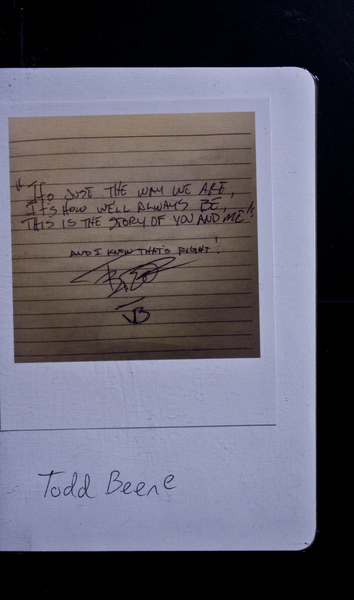 "It's JUST THE WAY WE ARE,
IT'S HOW WE'LL ALWAYS BE,
THIS IS THE STORY OF YOU AND ME!"
AND I KNOW THAT'S RIGHT!
Todd Beene